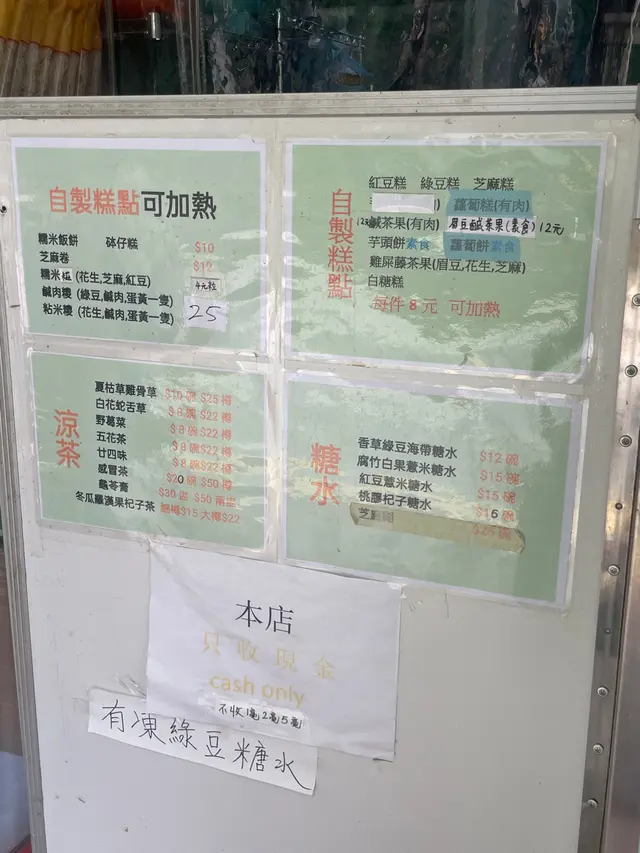 自製糕點可加熱
糯米飯餅 砵仔糕 $10
芝麻卷 $12
糯米糍 (花生,芝麻,紅豆) 4元粒
鹹肉糭 (綠豆,鹹肉,蛋黃一隻) 25
粘米糭 (花生,鹹肉,蛋黃一隻)
自製糕點
紅豆糕 綠豆糕 芝麻糕
蘿蔔糕(有肉)
鹹茶果(有肉) 眉豆鹹茶果(素食) 12元
芋頭餅素食 蘿蔔餅素食
雞屎藤茶果(眉豆,花生,芝麻)
白糖糕
每件8元 可加熱
涼茶
夏枯草雞骨草 $10碗 $25樽
白花蛇舌草 $8碗 $22樽
野葛菜 $8碗 $22樽
五花茶 $8碗 $22樽
廿四味 $8碗 $22樽
感冒茶 $20碗 $50樽
龜苓膏 $30盅 $50兩盅
冬瓜羅漢果杞子茶 細樽$15 大樽$22
糖水
香草綠豆海帶糖水 $12碗
腐竹白果薏米糖水 $15碗
紅豆薏米糖水 $15碗
桃膠杞子糖水 $16碗
芝麻
本店
只收現金
cash only
不收1毫2毫5毫
有凍綠豆糖水